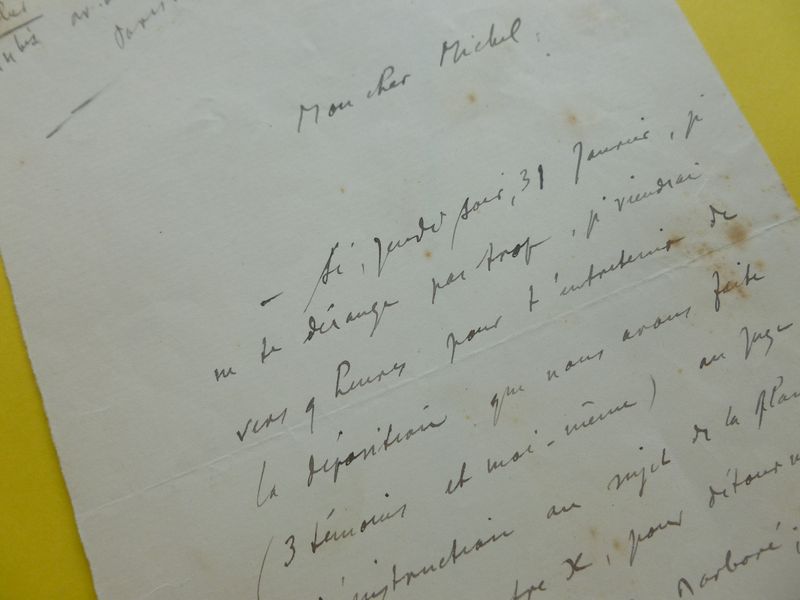 Paris
Mon cher Michel :
— Si, Jeudi soir, 31 Janvier, je
ne te dérange pas trop, je viendrai
vers 9 heures pour t'entretenir de
la déposition que nous avons faite
(3 témoins et moi-même) au Juge
d'instruction au sujet de la
tre X, pour détourn
Marboré